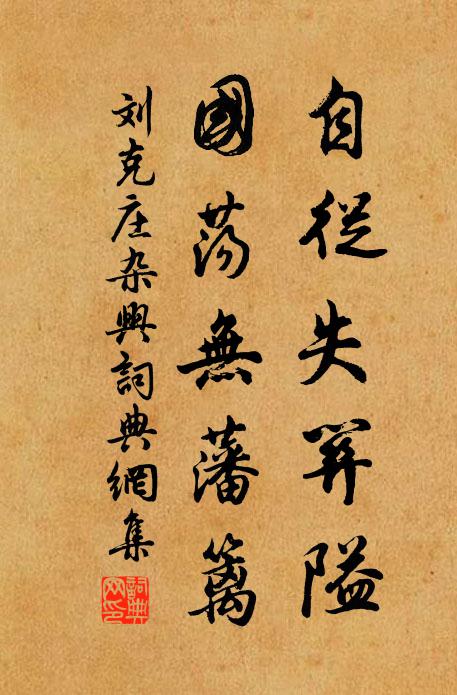 自從失關隘
國蕩無藩篱
刘克庄杂興詞典網集
詞典网印